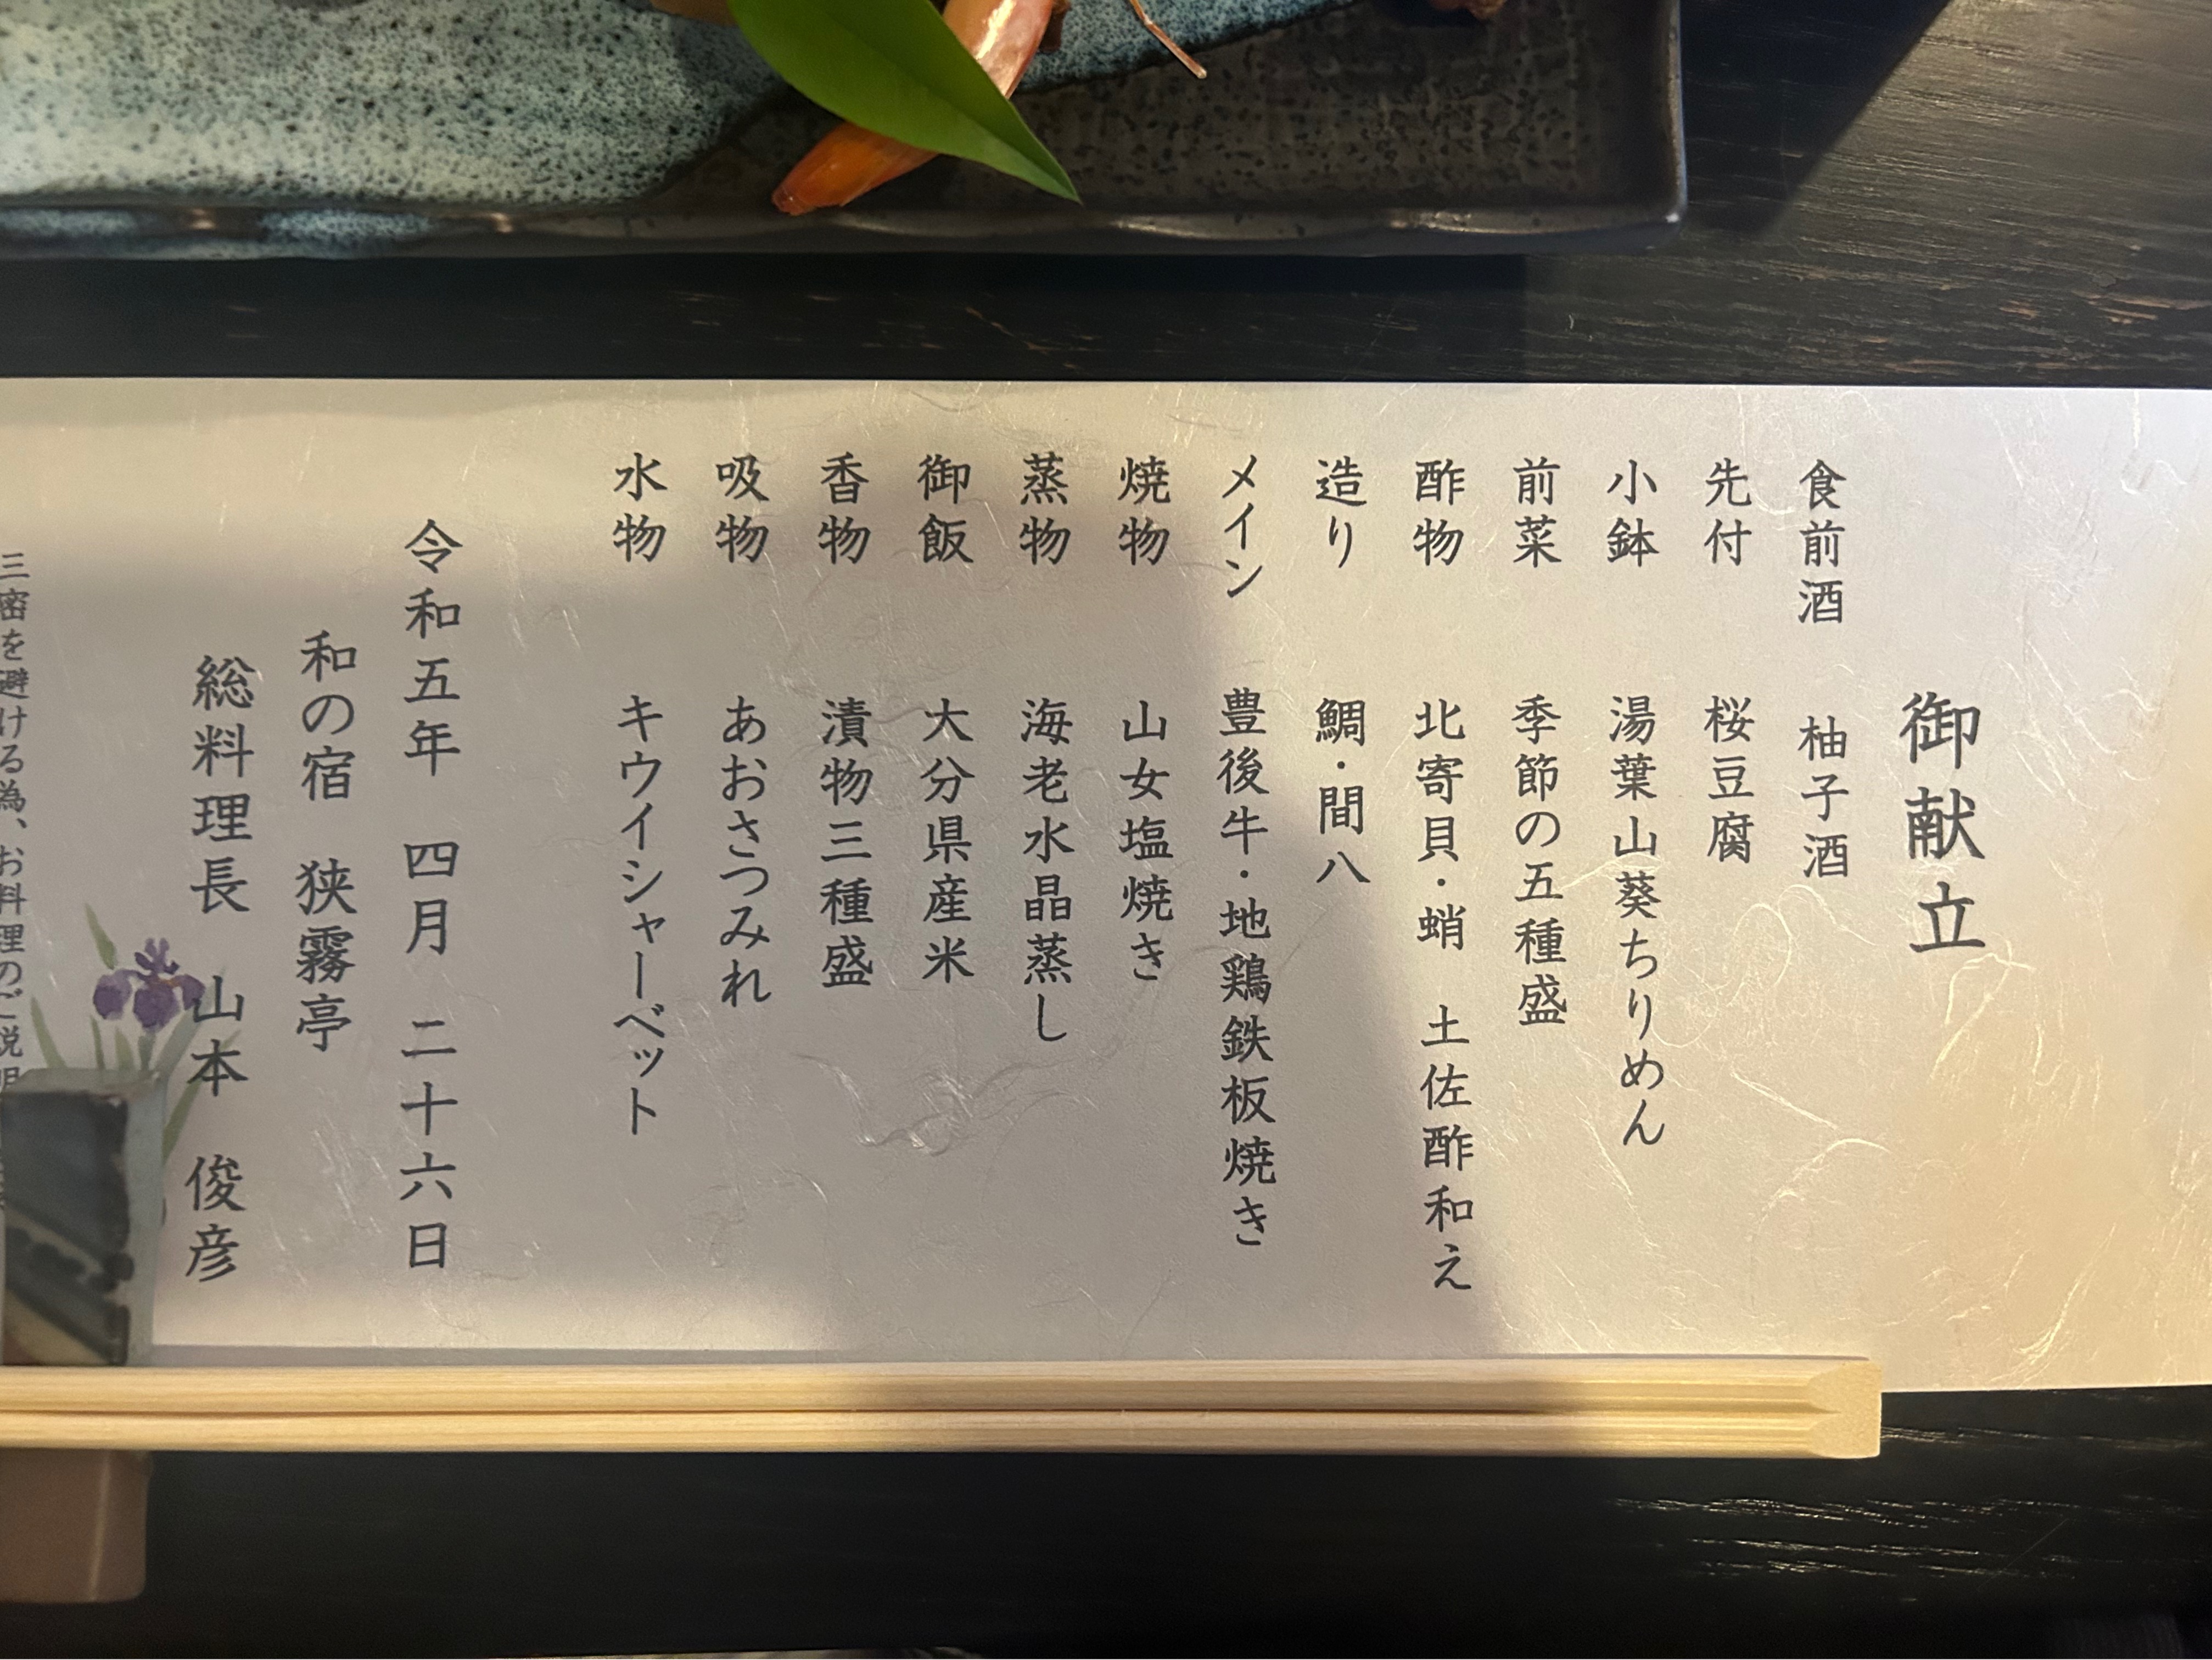 御献立
食前酒 柚子酒
先付 桜豆腐
小鉢 湯葉山葵ちりめん
前菜 季節の五種盛
酢物 北寄貝・蛸 土佐酢和え
造り 鯛・間八
メイン 豊後牛・地鶏鉄板焼き
焼物 山女塩焼き
蒸物 海老水晶蒸し
御飯 大分県産米
香物 漬物三種盛
吸物 あおさつみれ
水物 キウイシャーベット
令和五年 四月 二十六日
和の宿 狭霧亭
総料理長 山本 俊彦
三密を避ける為、お料理のご説明